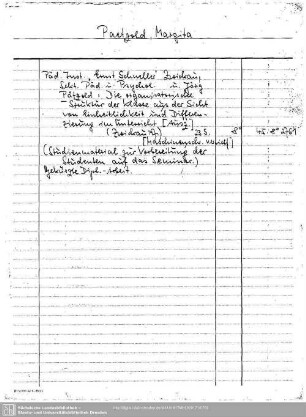 Paetzold, Margita
Päd. Inst. "Ernst Schneller" Zwickau,
Sekt. Päd. u. Psychol. u. Jörg
Pätzold: Die organisatorische
Struktur der Klasse aus der Sicht
von Einheitlichkeit und Differen-
zierung im Unterricht [Ausz.]
(Zwickau 19) 23 S. 8° 45. 8°
[Maschinenschr. vervielf.]
(Studienmaterial zur Vorbereitung der
Studenten auf das Seminar.)
Gekürzte Dipl.-Arbeit.
Sächsische Landesbibliothek -
Staats- und Universitätsbibliothek Dresden